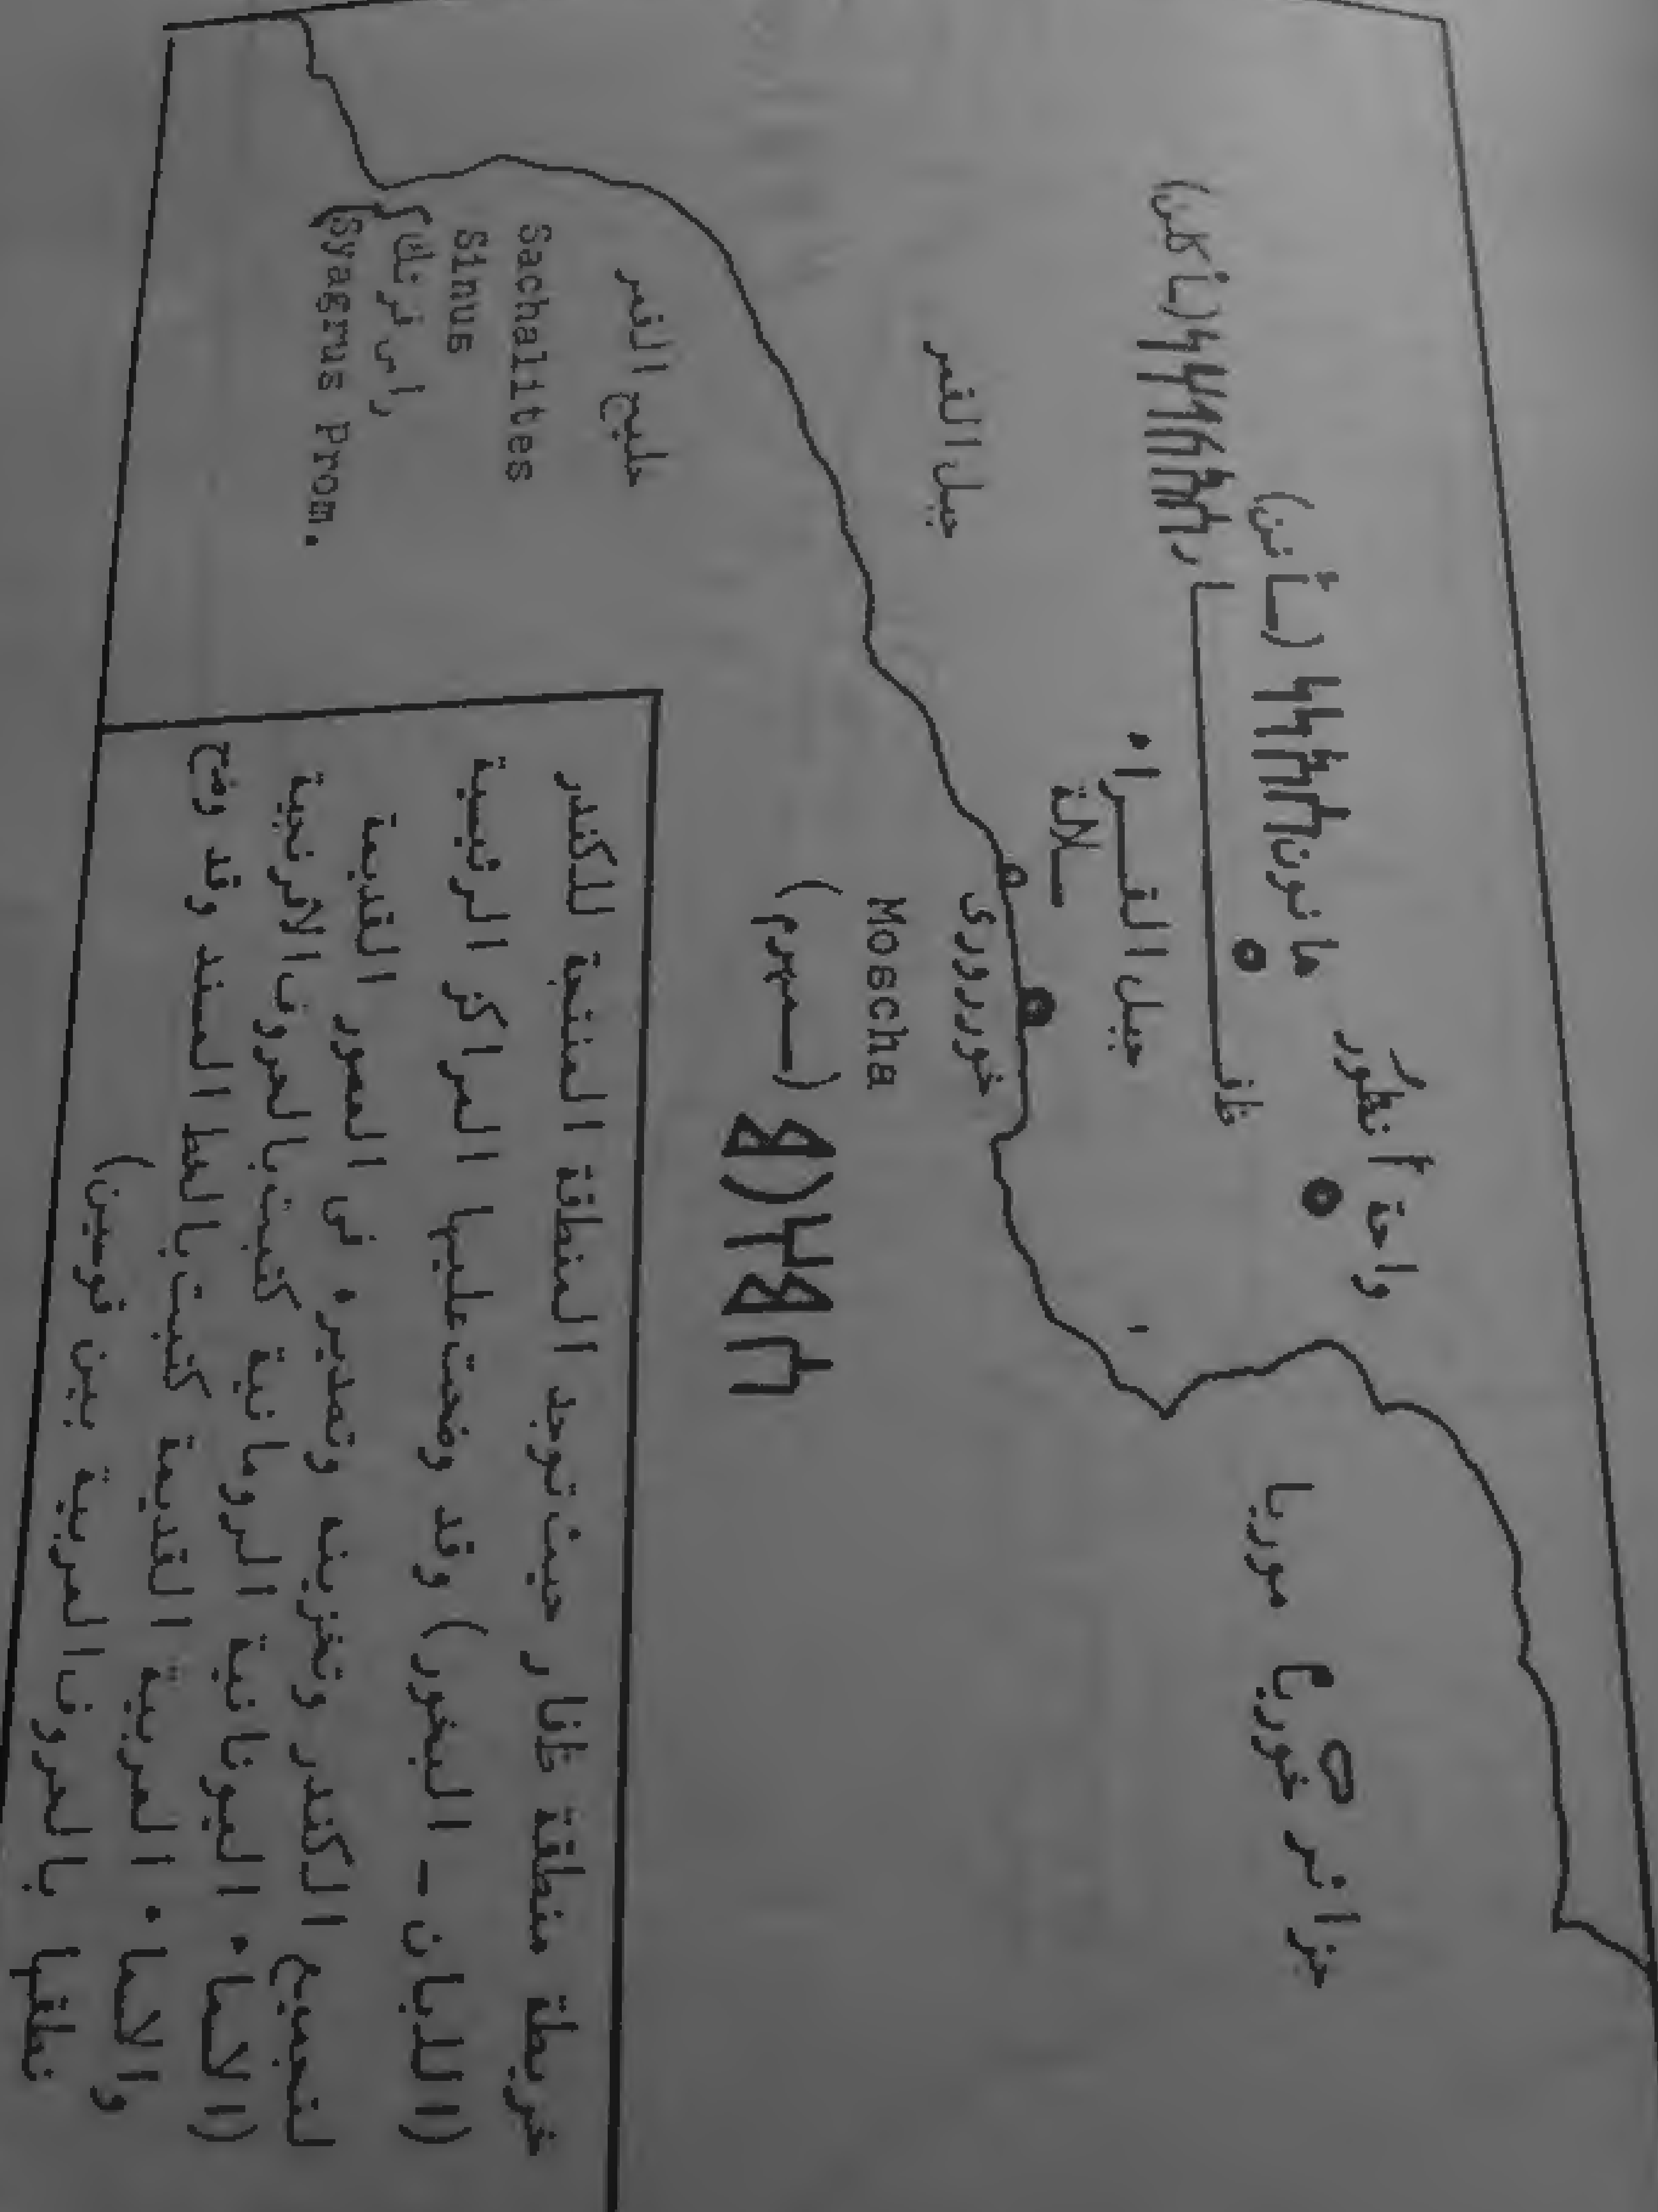 واحة أنظور
حانون
(سأنن)
ظفـ
ـار
(سأكلن)
جبل القـــرا•
صلالة
جبل القمر
خورروری
Moscha
(سمهرم)
𐩪𐩣𐩠𐩧𐩣
جزائر خوريا موريا
خليج القمر
Sachalites
Sinus
راس فرتك
Syagrus Prom.
خريطة منطقة ظفار حيث توجد المنطقة المنتجة للكندر
(اللبان - البخور) وقد وضحت عليها المراكز الرئيسية
لتجميع الكندر وتخزينه وتصديره فى العصور القديمة
(الاسما• اليونانية الرومانية كتبت بالحروف الافرنجية
والاسما• العربية القديمة كتبت بالخط المسند وقد وضح
نطقها بالحروف العربية بين قوسين)